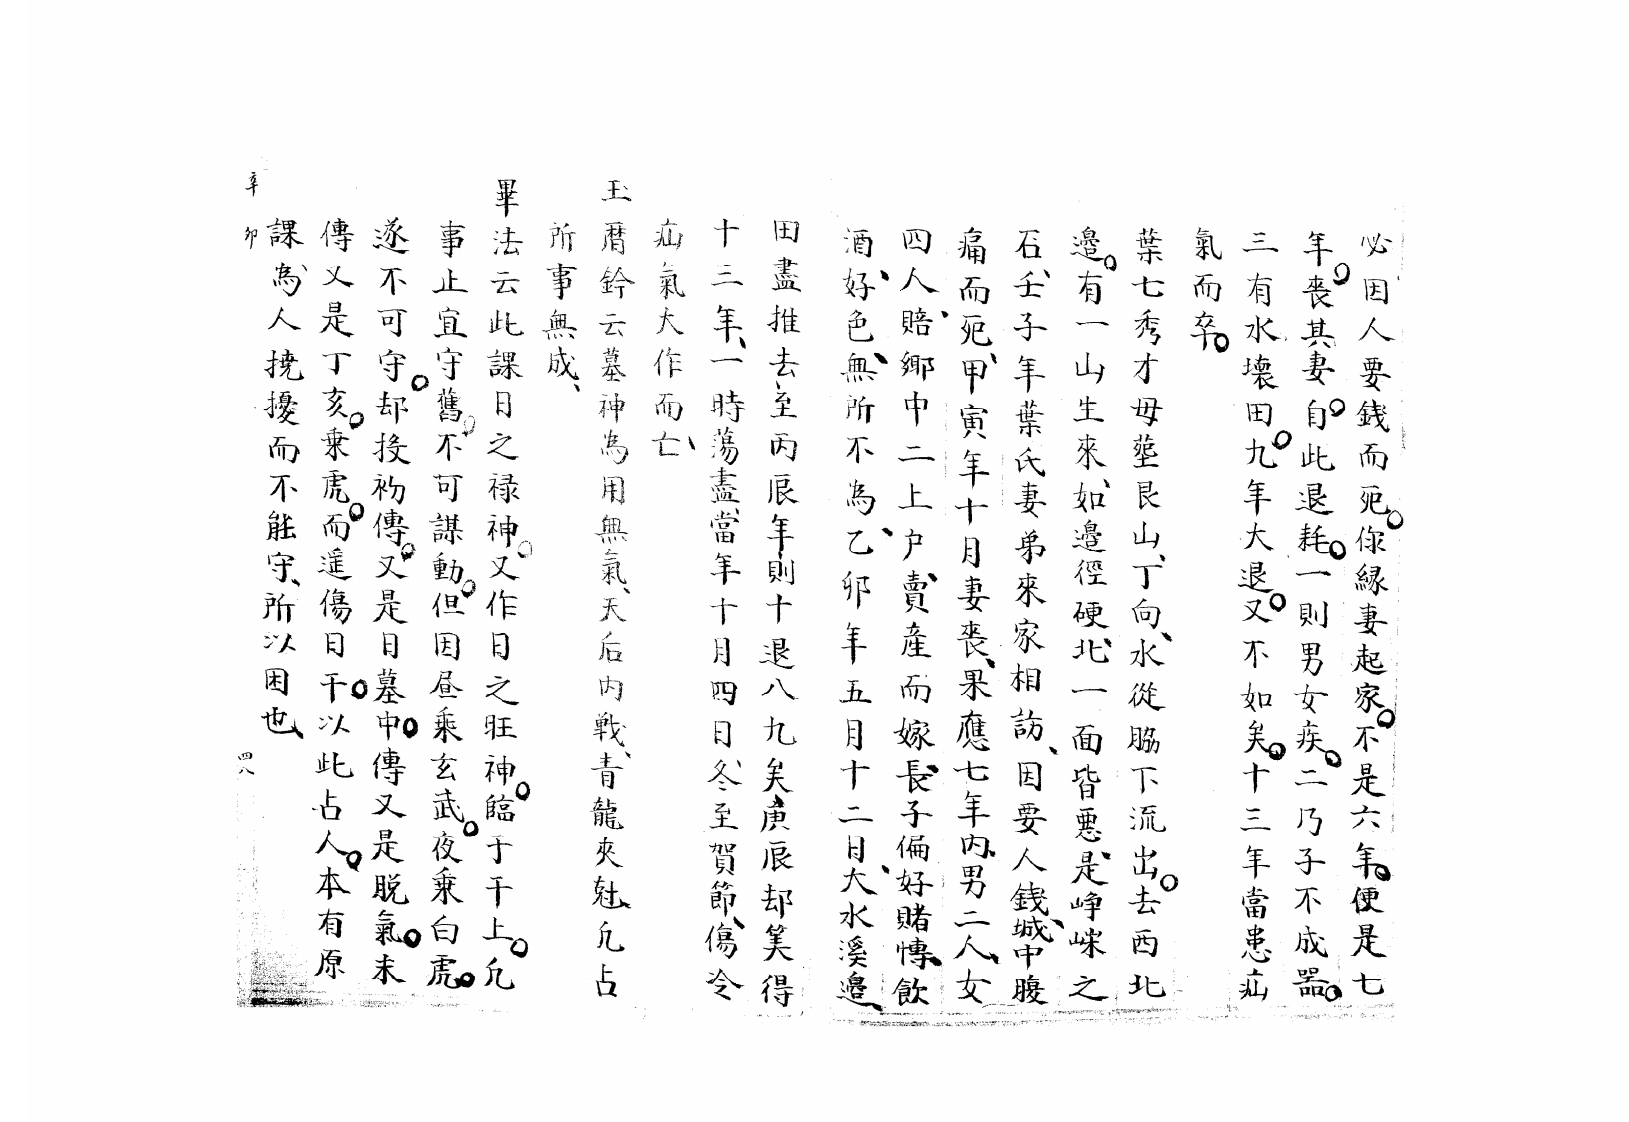 必因人要錢而死。你緣妻起家。不是六年。便是七
年。喪其妻。自此退耗。一則男女疾。二乃子不成器。
三有水壞田。九年大退。又不如矣。十三年當患疝
氣而卒。
葉七秀才母塟艮山、丁向、水從脇下流出。去西北
邉。有一山生來、如邉徑硬北、一面皆惡、是崢嶸之
石、壬子年葉氏妻弟來家相訪、因要人錢、城中腹
痛而死、甲寅年十月妻喪、果應七年内、男二人、女
四人、賠鄉中二上户、賣產而嫁、長子偏好賭慱、飲
酒、好色、無所不為、乙卯年五月十二日、大水溪邉、
田盡推去、至丙辰年則十退八九矣、庚辰却筭得
十三年、一時蕩盡、當年十月四日、冬至賀節、傷冷
疝氣大作而亡、
玉暦鈐云墓神為用無氣、天后内戰、青龍夾尅、凢占
所事無成、
畢法云此課日之禄神。又作日之旺神。臨于干上。凢
事止宜守舊。不可謀動。但因昼乘玄武。夜乗白虎。
遂不可守。却投初傳。又是日墓。中傳又是脱氣。末
傳又是丁亥。乗虎。而遥傷日干。以此占人。本有原
課、為人撓擾而不能守、所以困也、
辛卯 四八